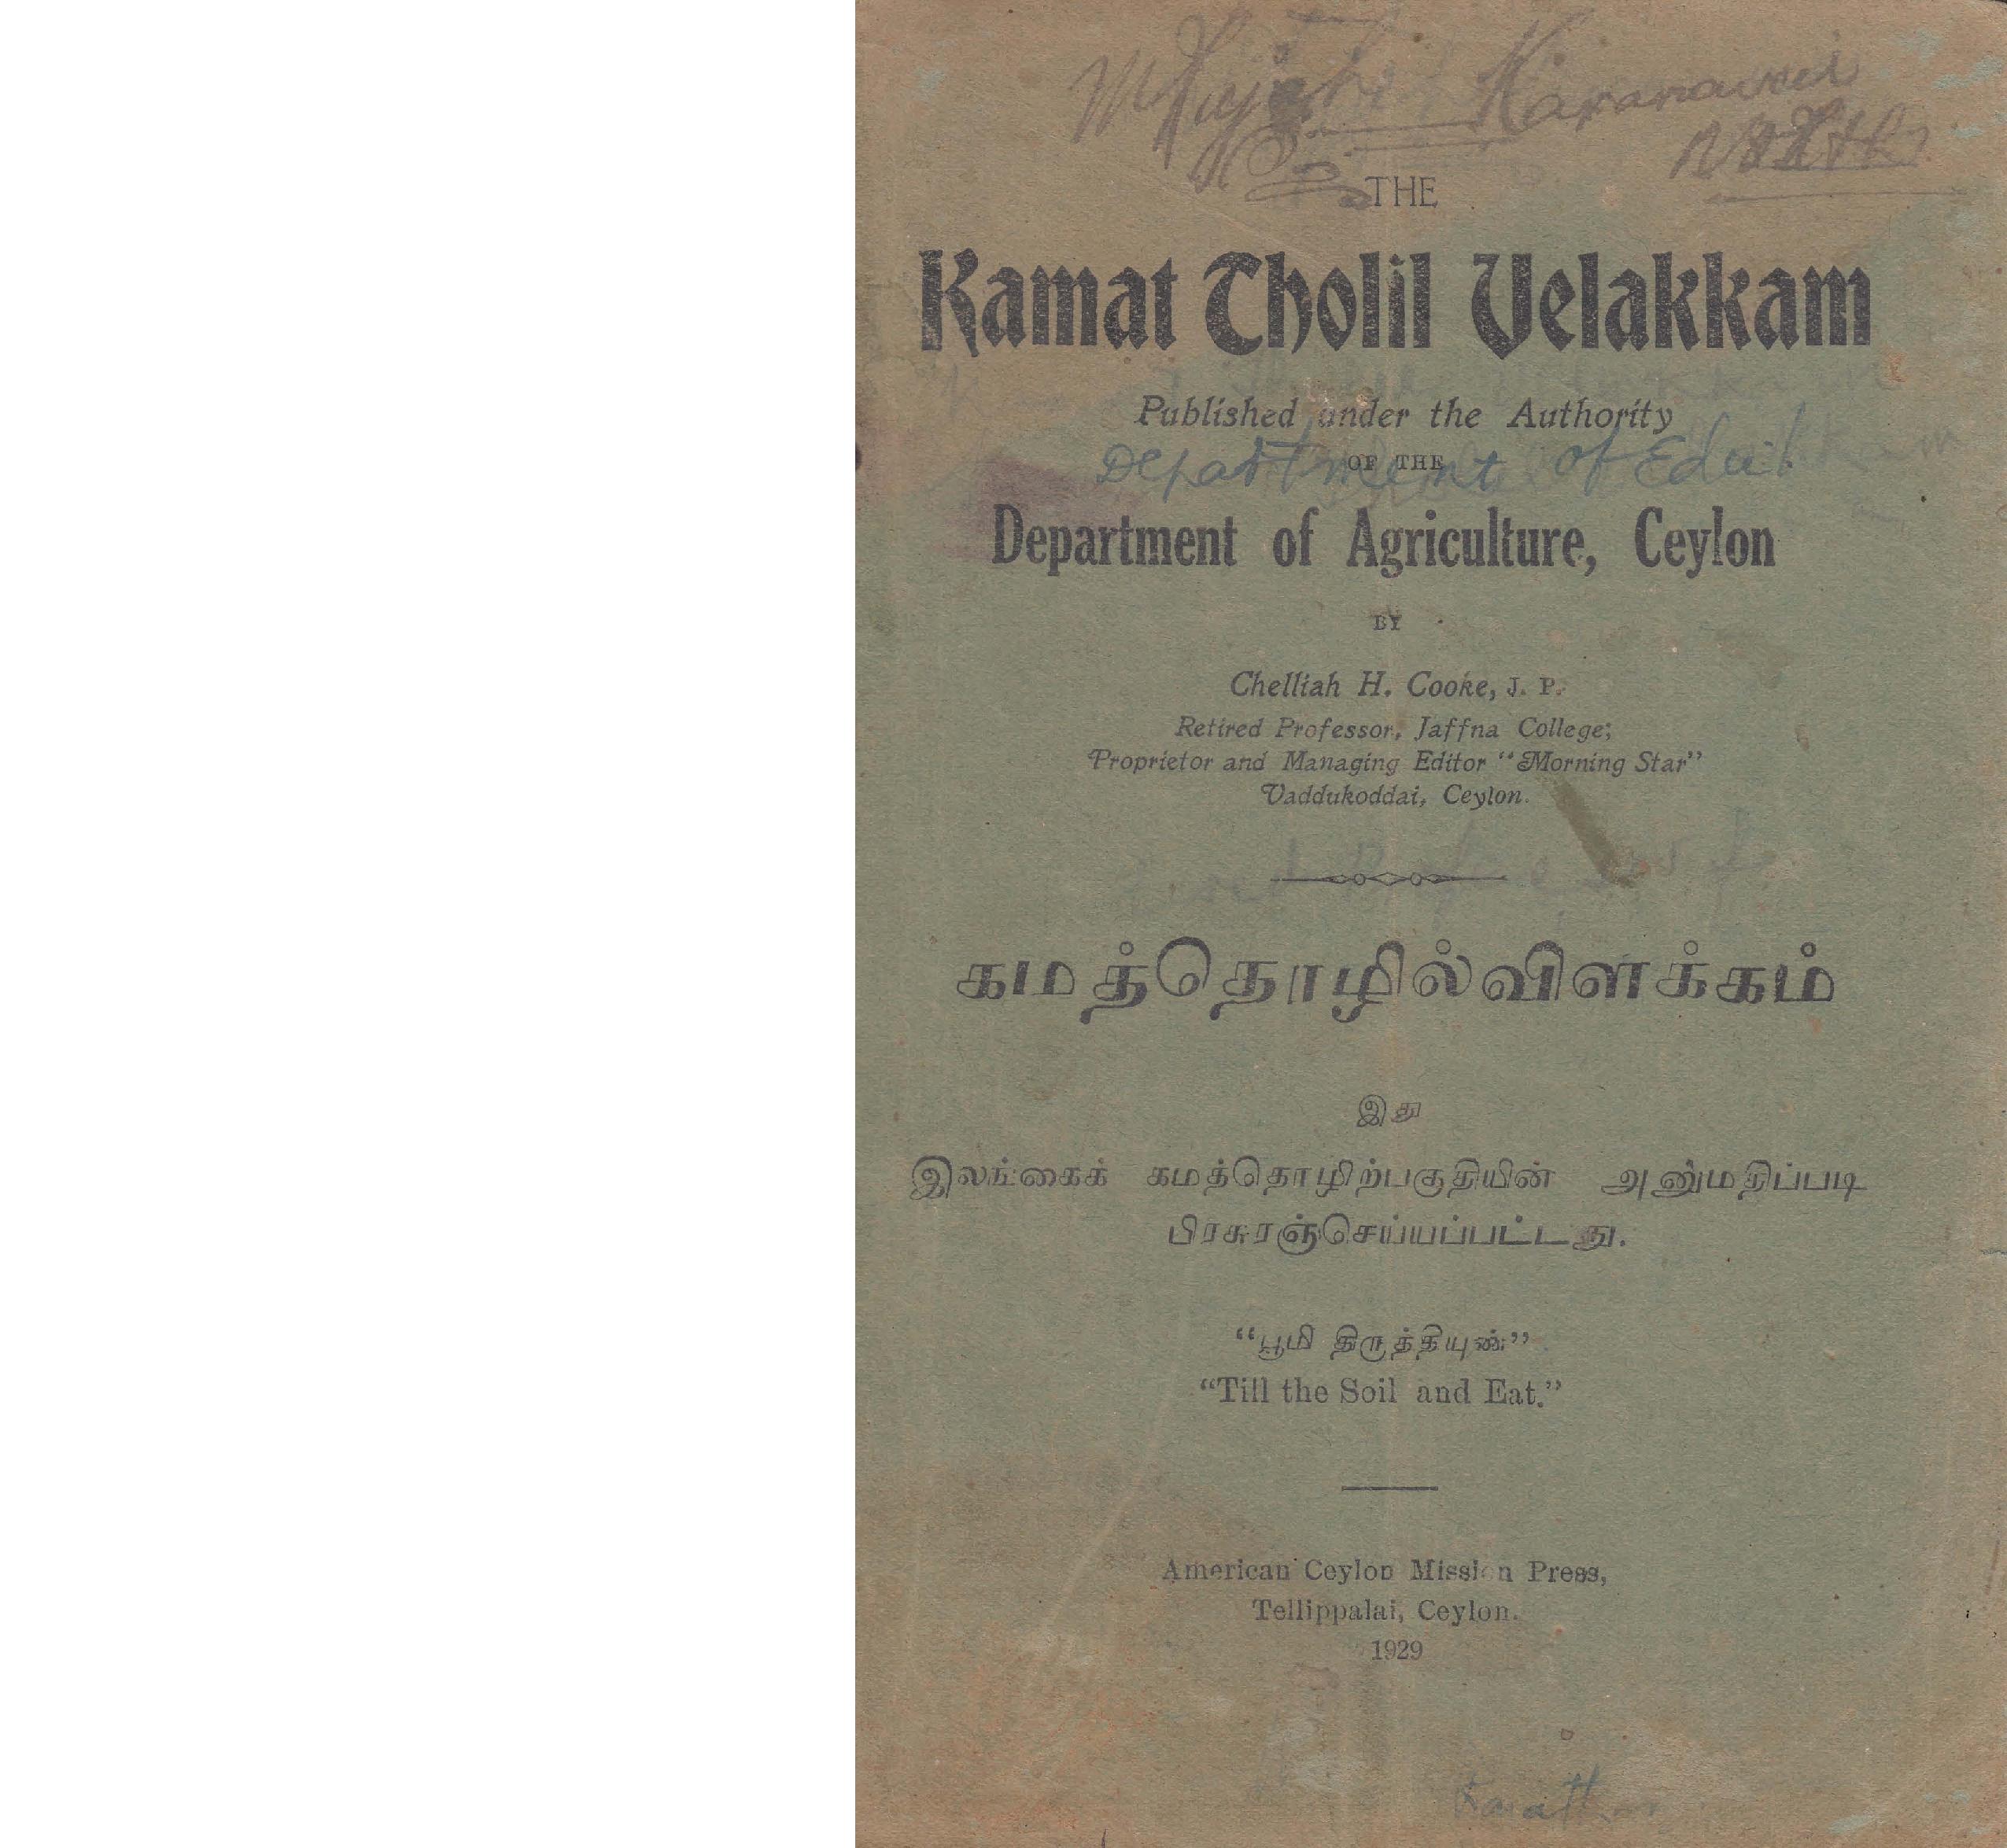 Karanavai
THE
Kamat Tholil Velakkam
Published under the Authority
OF THE
Department of Edu
Department of Agriculture, Ceylon
BY
Chelliah H. Cooke, J. P.
Retired Professor, Jaffna College;
Proprietor and Managing Editor "Morning Star"
Vaddukoddai, Ceylon.
கமத்தொழில்விளக்கம்
இது
இலங்கைக் கமத்தொழிற்பகுதியின் அனுமதிப்படி
பிரசுரஞ்செய்யப்பட்டது.
"பூமி திருத்தியுண்"
"Till the Soil and Eat."
American Ceylon Mission Press,
Tellippalai, Ceylon.
1929